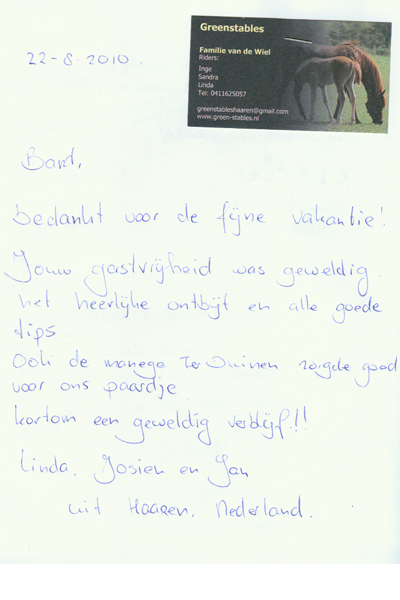 Greenstables
Familie van de Wiel
Riders:
Inge
Sandra
Linda
Tel: 0411625057
greenstableshaaren@gmail.com
www.green-stables.nl
22-8-2010.
Bart,
bedankt voor de fijne vakantie!
Jouw gastvrijheid was geweldig.
het heerlijke ontbijt en alle goede
tips.
Ook de manege Ter Duinen zorgde goed
voor ons paardje
kortom een geweldig verblijf!!
Linda, Josien en Jan
uit Haaren, Nederland.